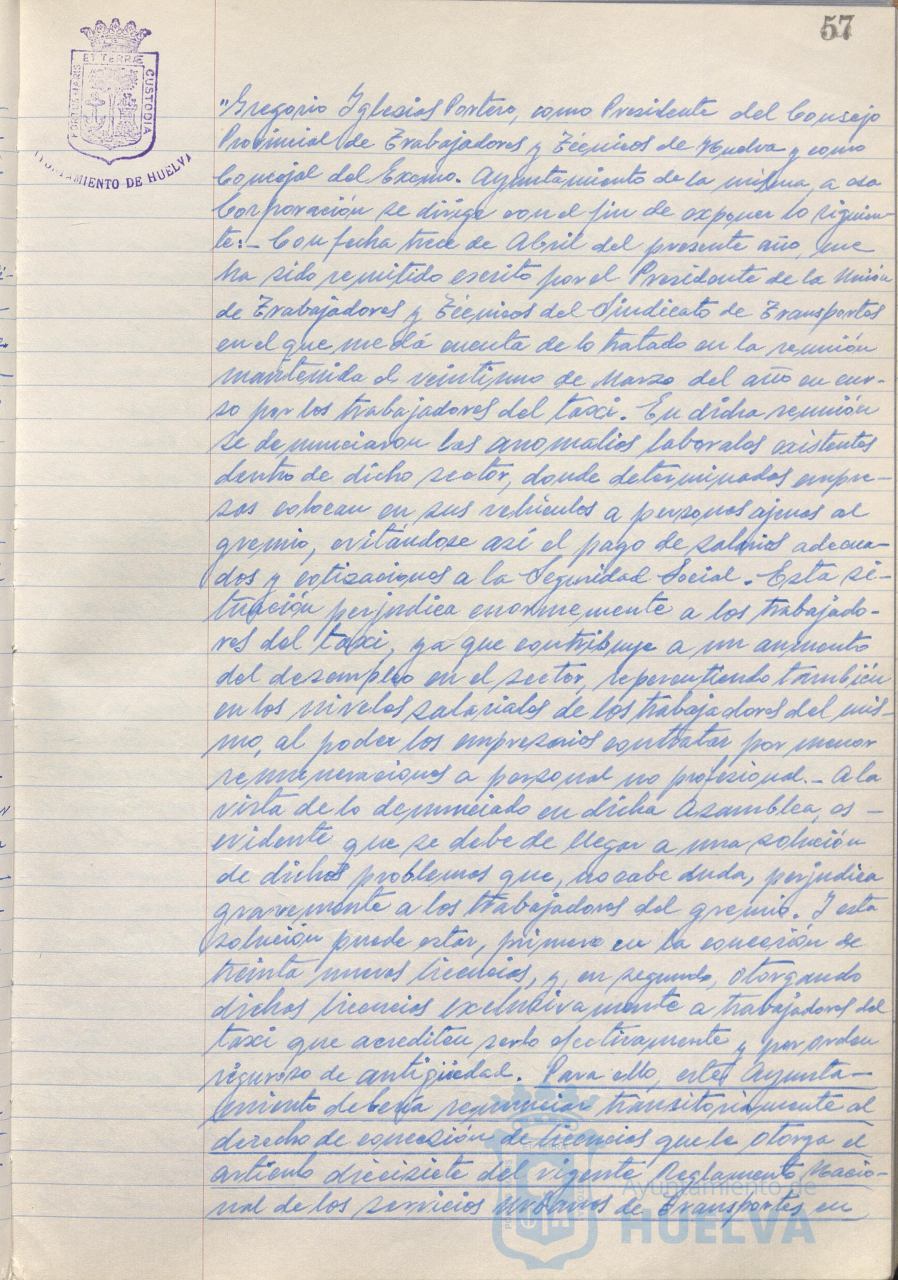 57
PORTUS MARIS
ET TERRÆ
CUSTODIA
AYUNTAMIENTO DE HUELVA
"Gregorio Iglesias Portero, como Presidente del Consejo
Provincial de Trabajadores y Técnicos de Huelva y como
Concejal del Excmo. Ayuntamiento de la misma, a esa
Corporación se dirige con el fin de exponer lo siguien-
te:- Con fecha trece de Abril del presente año, me
ha sido remitido escrito por el Presidente de la Unión
de Trabajadores y Técnicos del Sindicato de Transportes
en el que me dá cuenta de lo tratado en la reunión
mantenida el veintiuno de Marzo del año en cur-
so por los trabajadores del taxi. En dicha reunión
se denunciaron las anomalías laborales existentes
dentro de dicho sector, donde determinadas empre-
sas colocan en sus vehículos a personas ajenas al
gremio, evitándose así el pago de salarios adecua-
dos y cotizaciones a la Seguridad Social. Esta si-
tuación perjudica enormemente a los trabajado-
res del taxi, ya que contribuye a un aumento
del desempleo en el sector, repercutiendo también
en los niveles salariales de los trabajadores del mis-
mo, al poder los empresarios contratar por menor
remuneraciones a personal no profesional.- A la
vista de lo denunciado en dicha Asamblea, es
evidente que se debe de llegar a una solución
de dichos problemas que, no cabe duda, perjudica
gravemente a los trabajadores del gremio. Y esta
solución puede estar, primero en la concesión de
treinta nuevas licencias, y, en segundo, otorgando
dichas licencias exclusivamente a trabajadores del
taxi que acrediten serlo efectivamente y por orden
riguroso de antigüedad. Para ello, este Ayunta-
miento debería renunciar transitoriamente al
derecho de concesión de licencias que le otorga el
artículo diecisiete del vigente Reglamento Nacio-
nal de los servicios urbanos de Transportes en
Ayuntamiento de
HUELVA